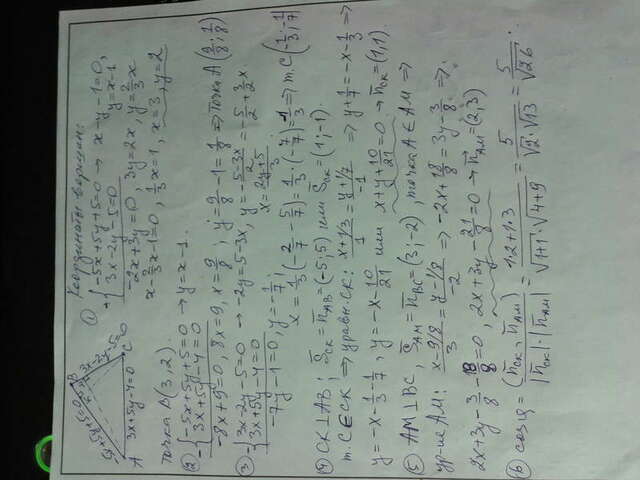 Координаты вершин:
① + { -5x+5y+5=0 → x-y-1=0,
3x-2y-5=0 y=x-1,
-2x+3y=0, 3y=2x, y=2/3 x
x-2/3x-1=0, 1/3x=1, x=3, y=2
A 3x+5y-4=0 C
точка B(3,2).
② - { -5x+5y+5=0 → y=x-1.
3x+5y-4=0
-8x+9=0, 8x=9, x=9/8, y=9/8-1=1/8 ⇒ точка A(9/8; 1/8)
③ - { 3x-2y-5=0 → -2y=5-3x, y=-(5-3x)/2=-5/2+3/2x
3x+5y-4=0 x=(2y+5)/3
-7y-1=0, y=-1/7; x=1/3(-2/7-5/7)=1/3·(-7/7)=-1/3 ⇒ т.C(-1/3; -1/7)
④ CK⊥AB; S̄CK=n̄AB=(-5;5) или S̄CK=(1;-1).
т.C∈CK ⇒ уравн.CK: (x+1/3)/1=(y+1/7)/-1 ⇒ y+1/7=-x-1/3 ⇒
y=-x-1/3-1/7, y=-x-10/21 или x+y+10/21=0 → n̄CK=(1,1).
⑤ AM⊥BC, S̄AM=n̄BC=(3;-2), точка A∈AM ⇒
ур-ие AM: (x-9/8)/3=(y-1/8)/-2 ⇒ -2x+18/8=3y-3/8 ⇒
2x+3y-3/8-18/8=0, 2x+3y-21/8=0 → n̄AM=(2,3)
⑥ cosφ=(n̄CK, n̄AM)/(|n̄CK|·|n̄AM|)=(1·2+1·3)/(√1+1·√4+9)=5/(√2·√13)=5/√26.